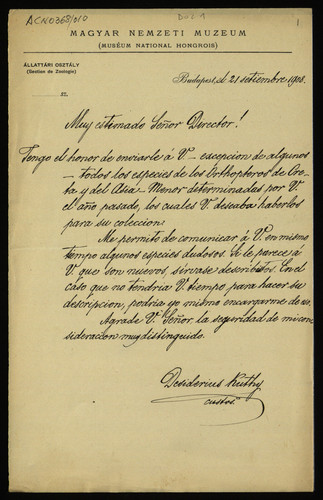 ACN0368/010
Doc. 1
1
MAGYAR NEMZETI MUZEUM
(MUSÉUM NATIONAL HONGROIS)
ÁLLATTÁRI OSZTÁLY
(Section de Zoologie)
SZ.
Budapest, de 21 setiembre 1908.
Muy estemado Señor Director!
Tengo el honor de enviarle á V – excepcion de algunos
– todos los especies de los Orthopteros de Cre-
ta y del Asia-Menor determinadas por V.
el año pasado, los cuales V. deseaba haberlos
para su coleccion.
Me permito de comunicar á V. en mismo
tiempo algunos especies dudosos. Si le parece á
V. que son nuevos, sirvase describirlos. En el
caso que no tendria V. tiempo para hacer su
descripcion, podria yo mismo encargarme de eso.
Agrade V. Señor, la seguridad de mi con-
sideracion muy distinguido.
Desiderius Kuthy
custos.